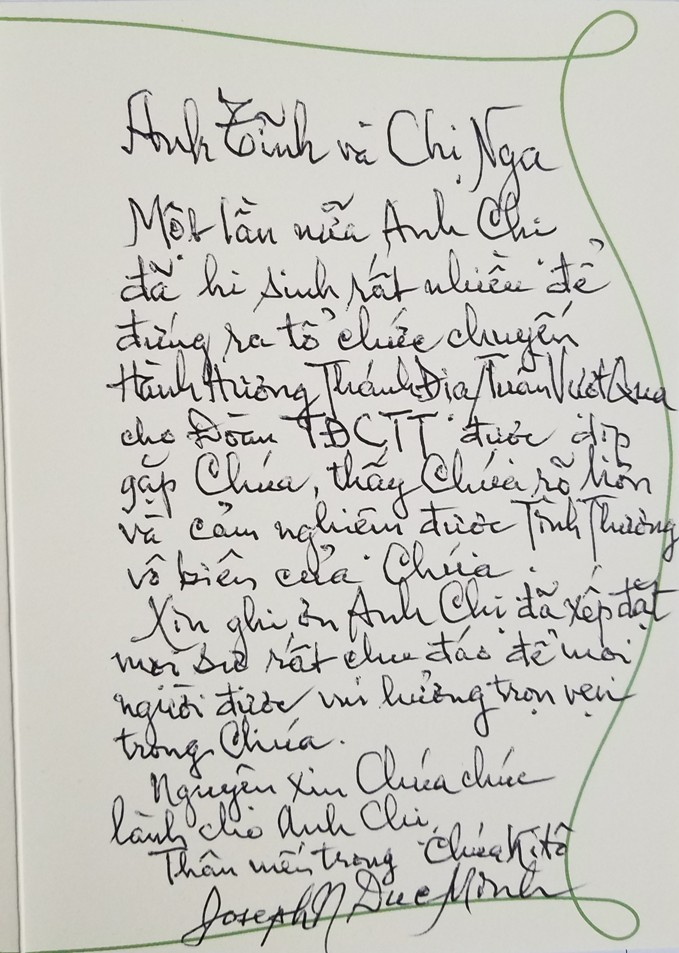 Anh Tĩnh và Chị Nga
Một lần nữa Anh Chị
đã hi sinh rất nhiều để
đứng ra tổ chức chuyến
Hành Hương Thánh Địa/Tuần Vượt Qua
cho Đoàn TĐCTT được dịp
gặp Chúa, thấy Chúa rõ hơn
và cảm nghiệm được Tình Thương
vô biên của Chúa.
Xin ghi ơn Anh Chị đã xếp đặt
mọi sự rất chu đáo để mọi
người được vui hưởng trọn vẹn
trong Chúa.
Nguyện xin Chúa chúc
lành cho Anh Chị
Thân mến trong Chúa Kitô
Joseph N Duc Minh